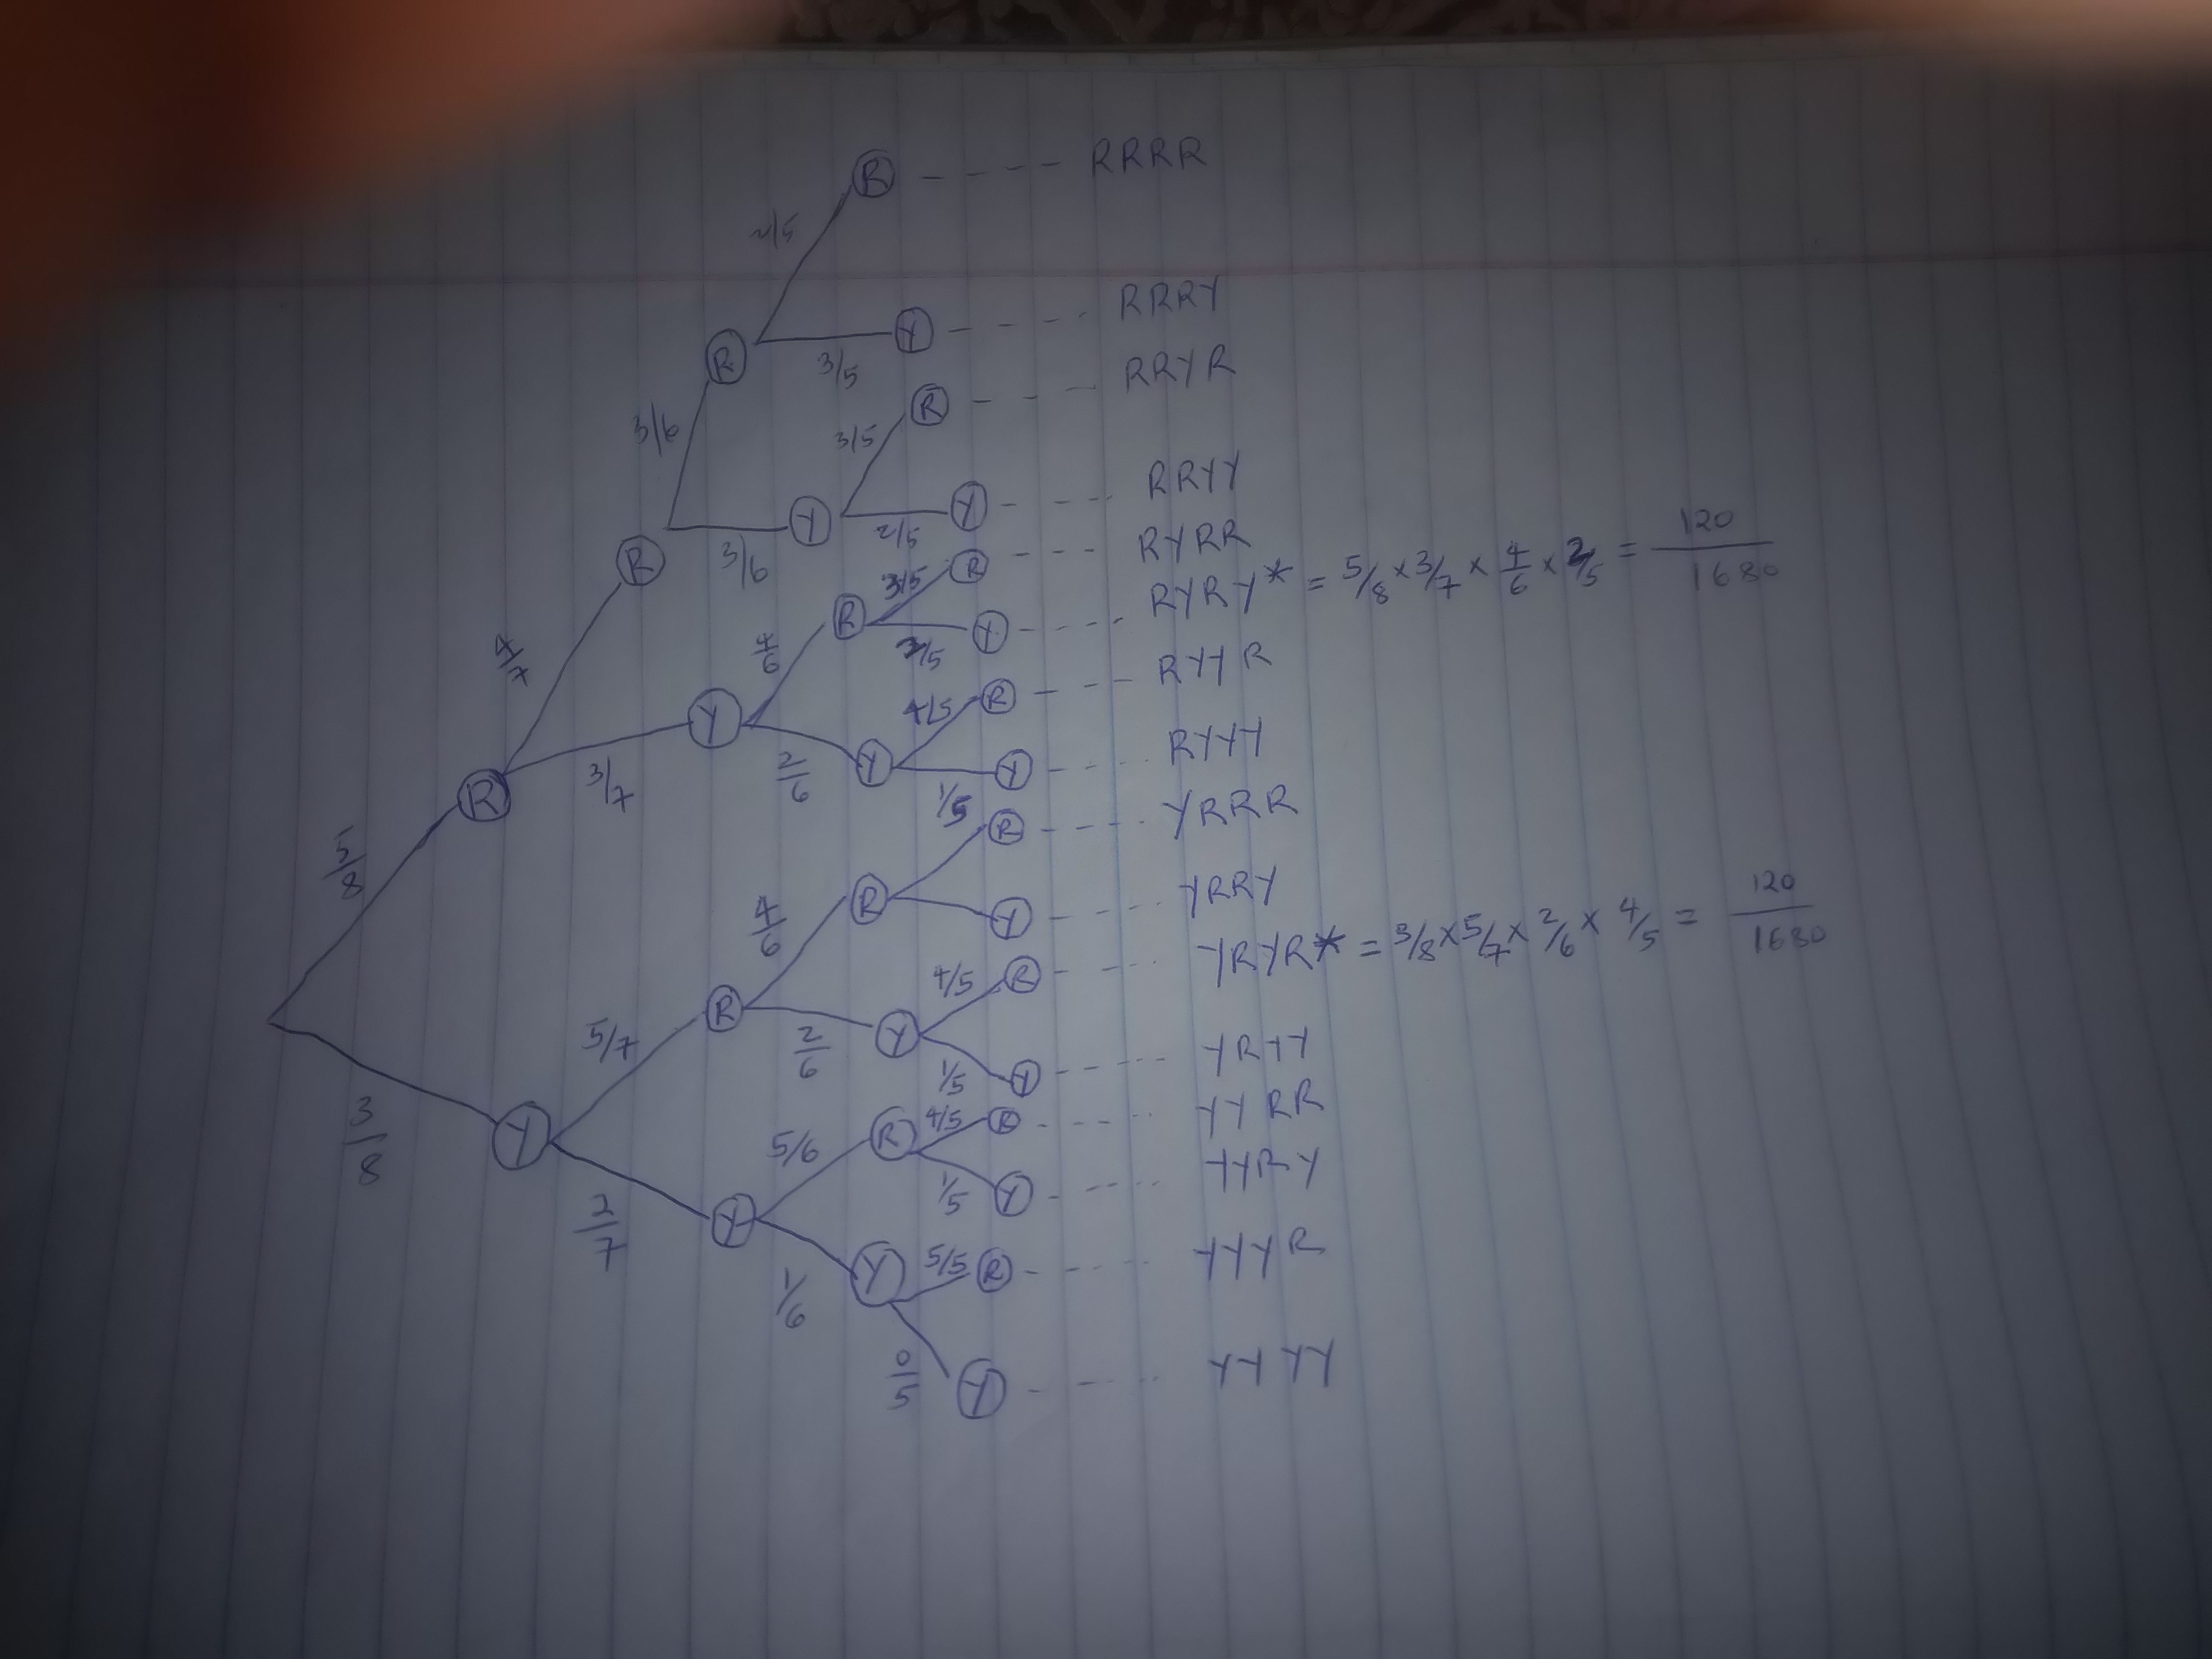 R ---- RRRR
2/5
R 3/5 Y ---- RRRY
3/6 3/5 R --- RRYR
R 3/6 Y 2/5 Y ---- RRYY
4/7 4/6 R 3/5 R --- RYRR
2/5 Y ---- RYRY* = 5/8 × 3/7 × 4/6 × 2/5 = 120/1680
R 3/7 Y 4/5 R ---- RYYR
2/6 Y 1/5 Y ---- RYYY
5/8 R ---- YRRR
4/6 R Y ---- YRRY
5/7 R 4/5 R ---- YRYR* = 3/8 × 5/7 × 2/6 × 4/5 = 120/1680
2/6 Y 1/5 Y ---- YRYY
3/8 Y 5/6 R 4/5 R ---- YYRR
1/5 Y ---- YYRY
2/7 Y 1/6 Y 5/5 R ---- YYYR
0/5 Y ---- YYYY